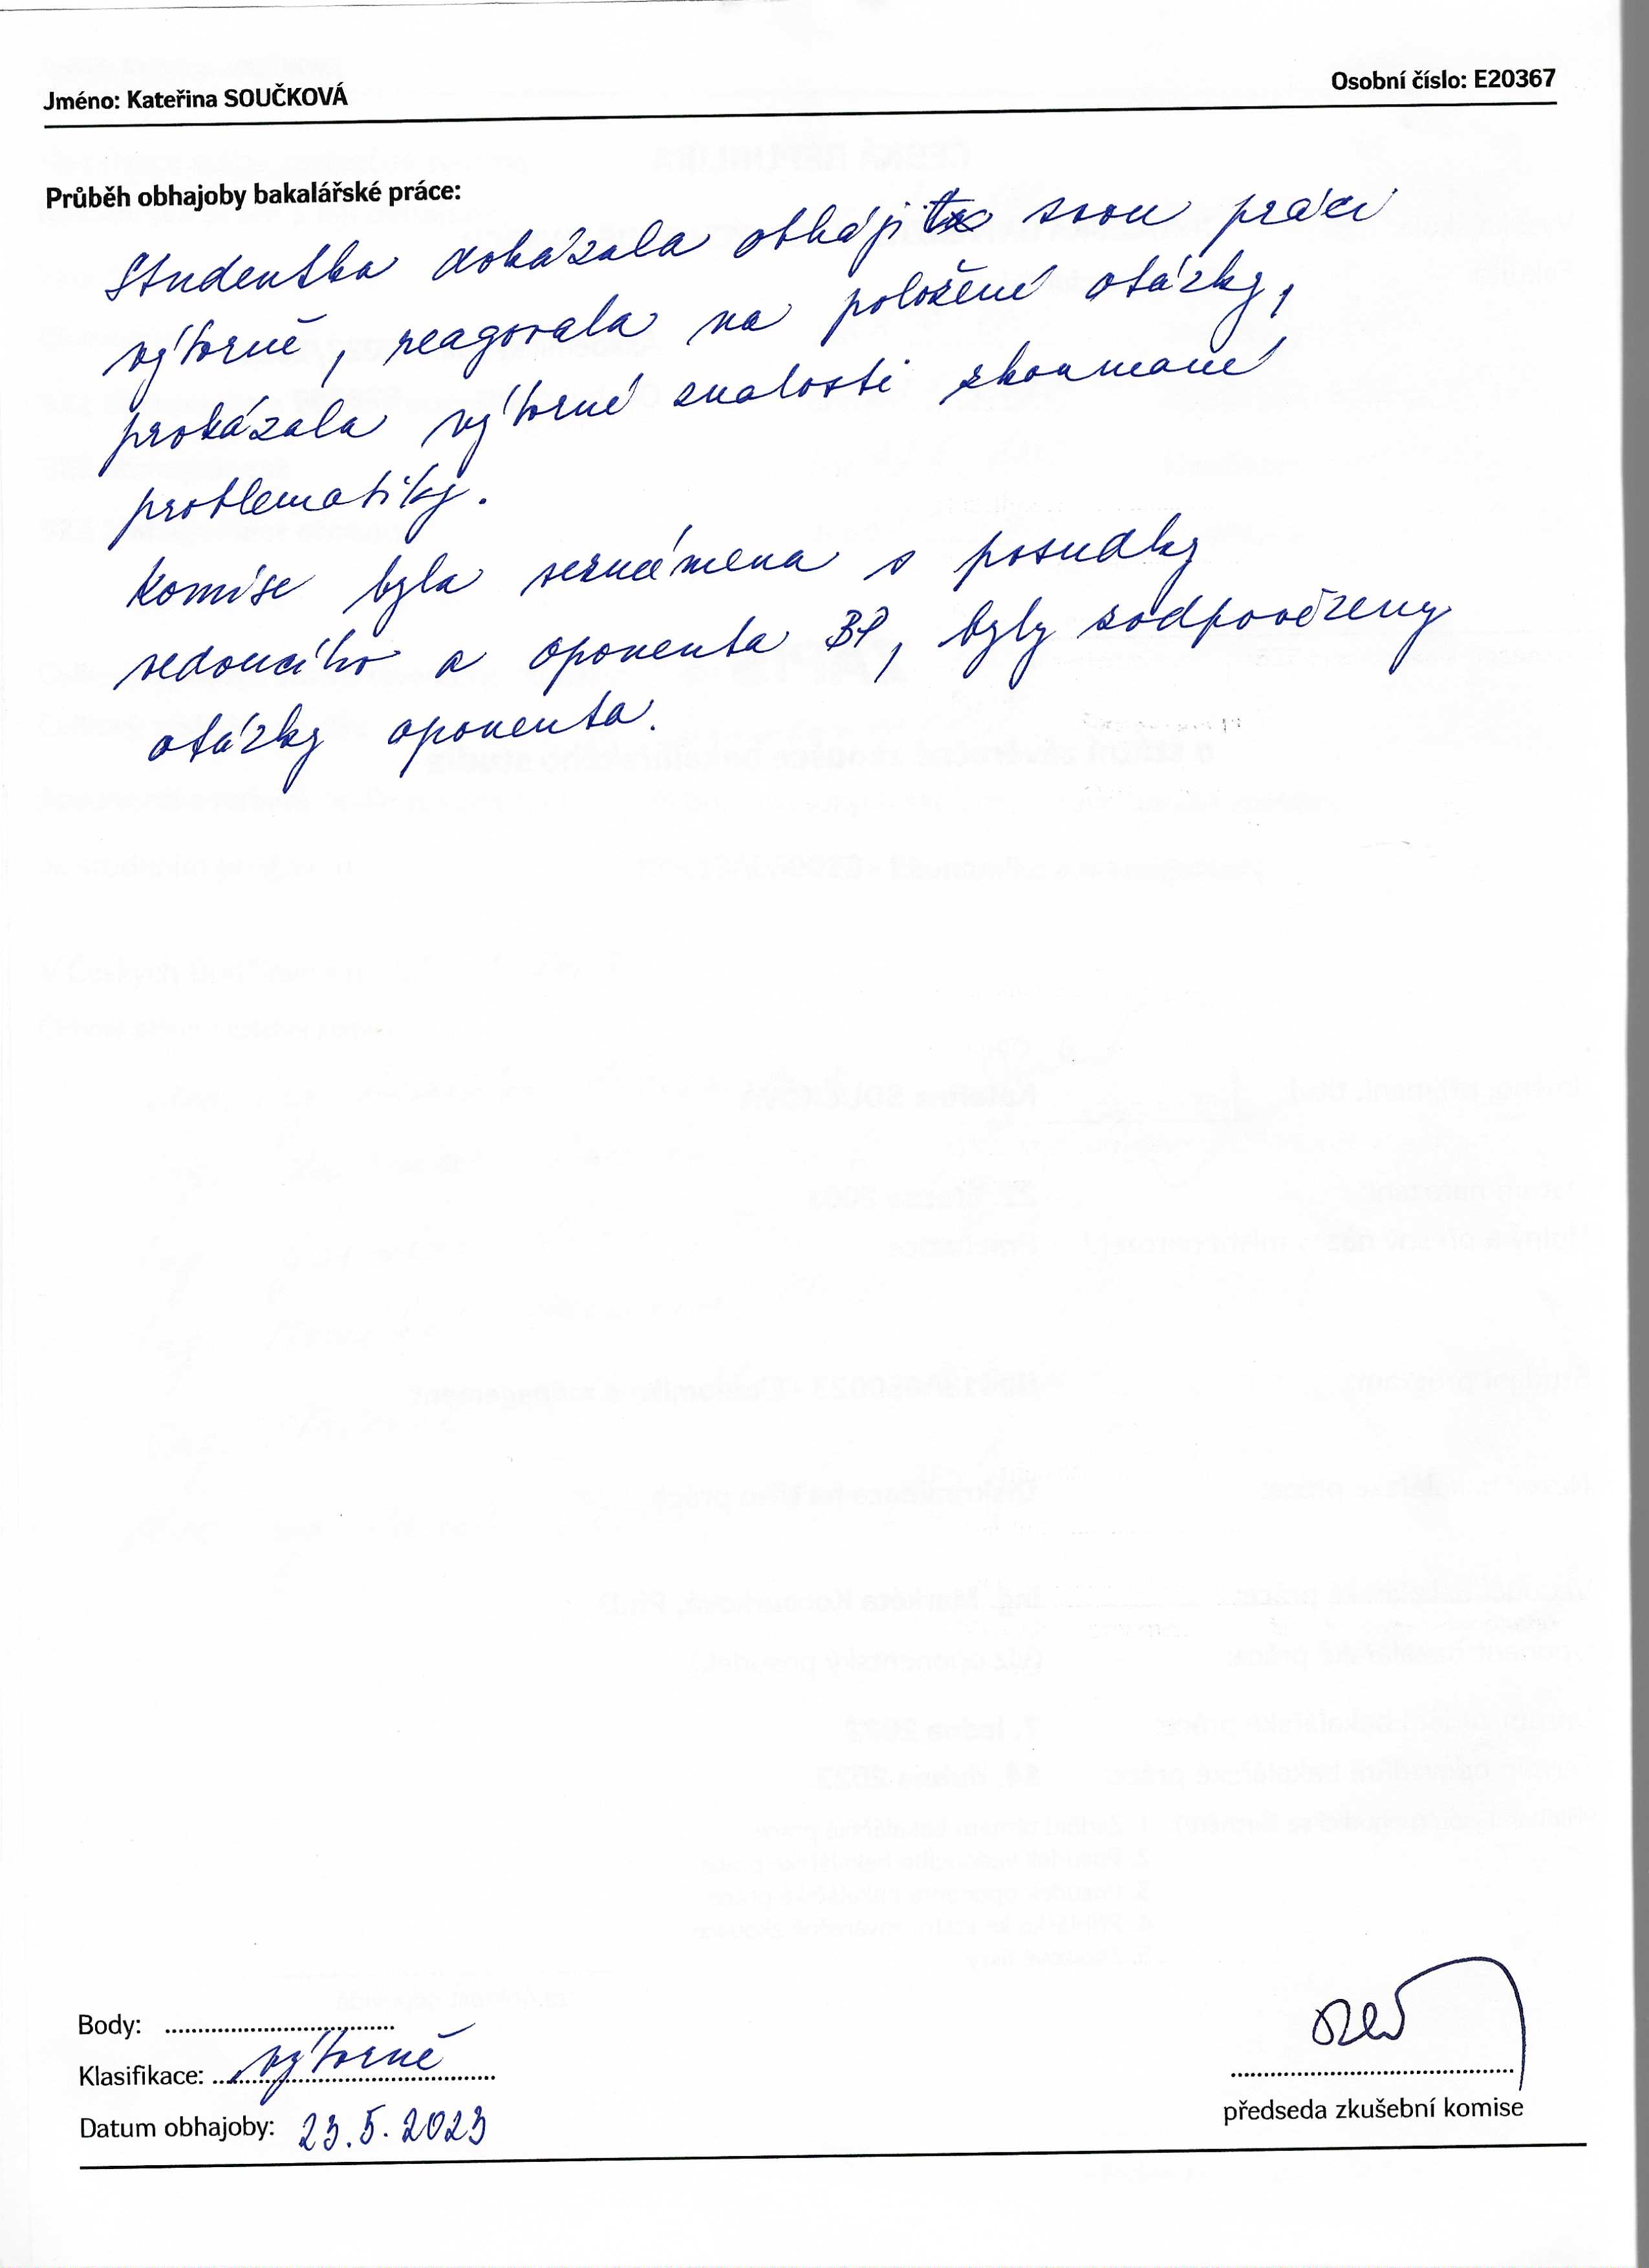 Jméno: Kateřina SOUČKOVÁ Osobní číslo: E20367
Průběh obhajoby bakalářské práce:
Studentka dokázala obhájit svou práci
výborně, reagovala na položené otázky,
prokázala výborné znalosti zkoumané
problematiky.
Komise byla seznámena s posudky
vedoucího a oponenta BP, byly zodpovězeny
otázky oponenta.
Body:
Klasifikace: výborně
Datum obhajoby: 23.5.2023
předseda zkušební komise